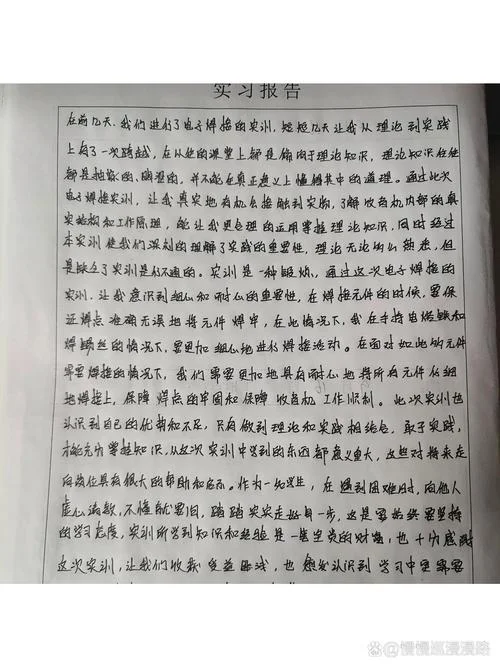 实习报告
在前几天,我们进行了电子焊接的实训,短短几天让我从理论到实践
上有了一次跨越,在以往的课堂上都是偏向于理论知识,理论知识往往
都是抽象的、晦涩的,并不能在真正意义上懂得其中的道理。通过此次
电子焊接实训,让我真实地有机会接触到实物,了解收音机内部的真
实结构和工作原理,能让我更合理的运用掌握理论知识,同时经过
本实训使我们深刻的理解了实践的重要性,理论无论多么熟悉,但
是缺乏了实训是行不通的。实训是一种锻炼,通过这次电子焊接的
实训,让我意识到细心和耐心的重要性,在焊接元件的时候,要保
证焊点准确无误地将元件焊牢,在此情况下,我在手持电烙铁和
焊锡丝的情况下,要更加细心地进行焊接活动。在面对如此多元件
需要焊接的情况下,我们需要更加地具有耐心地将所有元件仔细
地焊接上,保障焊点的牢固和保障收音机工作顺利。此次实训也
认识到自己的优势和不足,只有做到理论和实践相结合,敢于实践,
才能充分掌握知识,从这次实训中学到的东西都意义重大,这些对将来走
向岗位具有很大的帮助和启示。作为一名学生,在遇到困难时,向他人
虚心请教,不懂就要问,踏踏实实走好每一步,这是要始终要坚持
的学习态度,实训所学到知识和经验是一笔宝贵的财富,也十分感谢
这次实训,让我们收获受益匪浅,也愈发认识到学习中更需要
@慢慢巡漫漫路